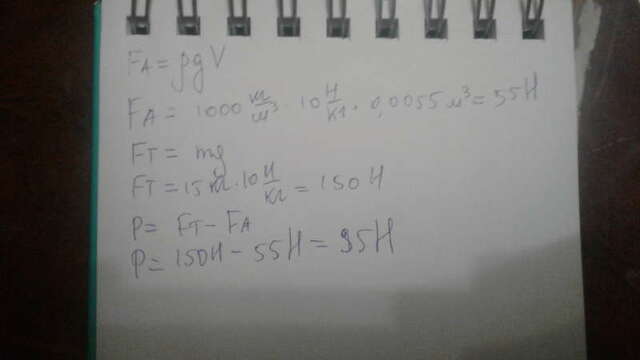 FА = ρgV
FА = 1000 кг/м³ · 10 Н/кг · 0,0055 м³ = 55Н
FТ = mg
FТ = 15кг · 10 Н/кг = 150 Н
P = FТ - FА
P = 150Н - 55Н = 95Н